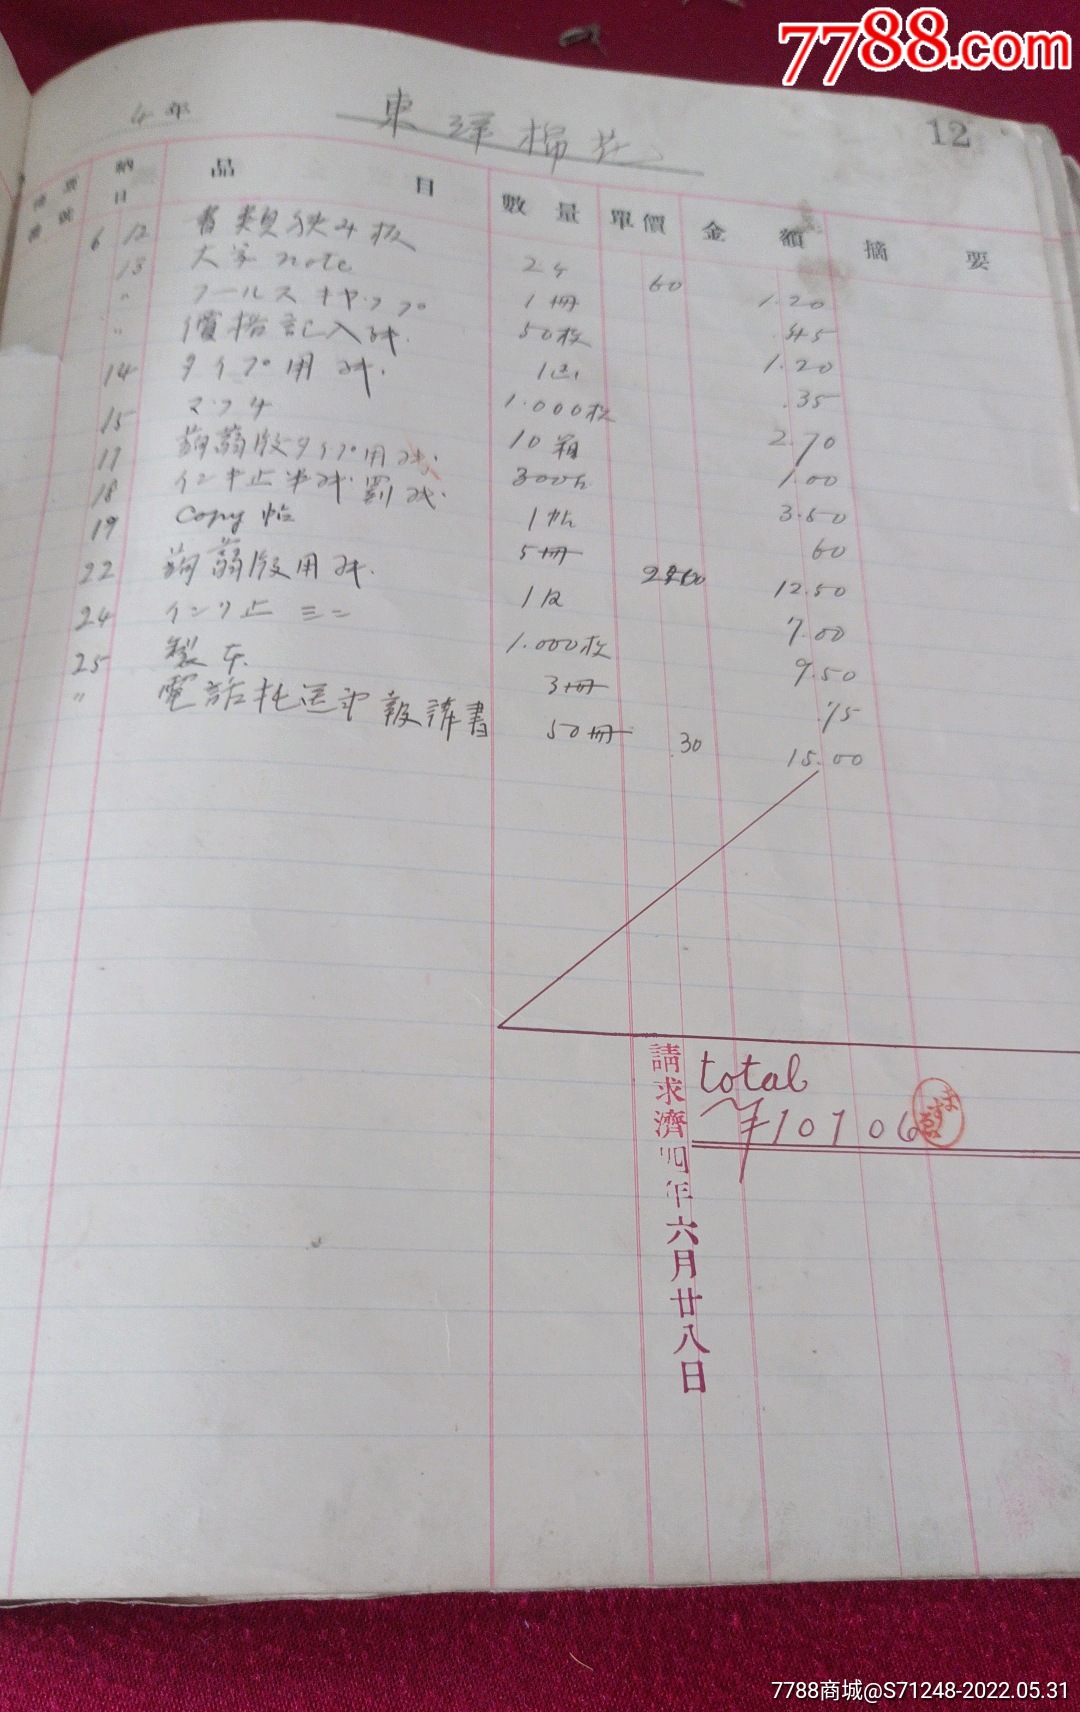 7788.com
4年
東洋棉花
12
納日 品目 數量 單價 金額 摘要
6 12 書類挟み板 24 60 1.20
13 大学note 1冊 .45
〃 フールスキャップ 50枚 1.20
〃 價格記入紙. .35
14 タイプ用紙. 1.000枚 2.70
15 マッチ 10箱 1.00
17 蒟蒻版タイプ用紙. 300 3.50
18 インキ止半紙罫紙. 1帖 60
19 Copy帖 5冊 12.50
22 蒟蒻版用紙. 7.00
24 イン 止 ミニ 1.000枚 9.50
25 製本. 3冊 .75
〃 電話托送電報請書 50冊 .30 15.00
請求濟四年六月廿八日
total
¥10706
7788商城@S71248-2022.05.31